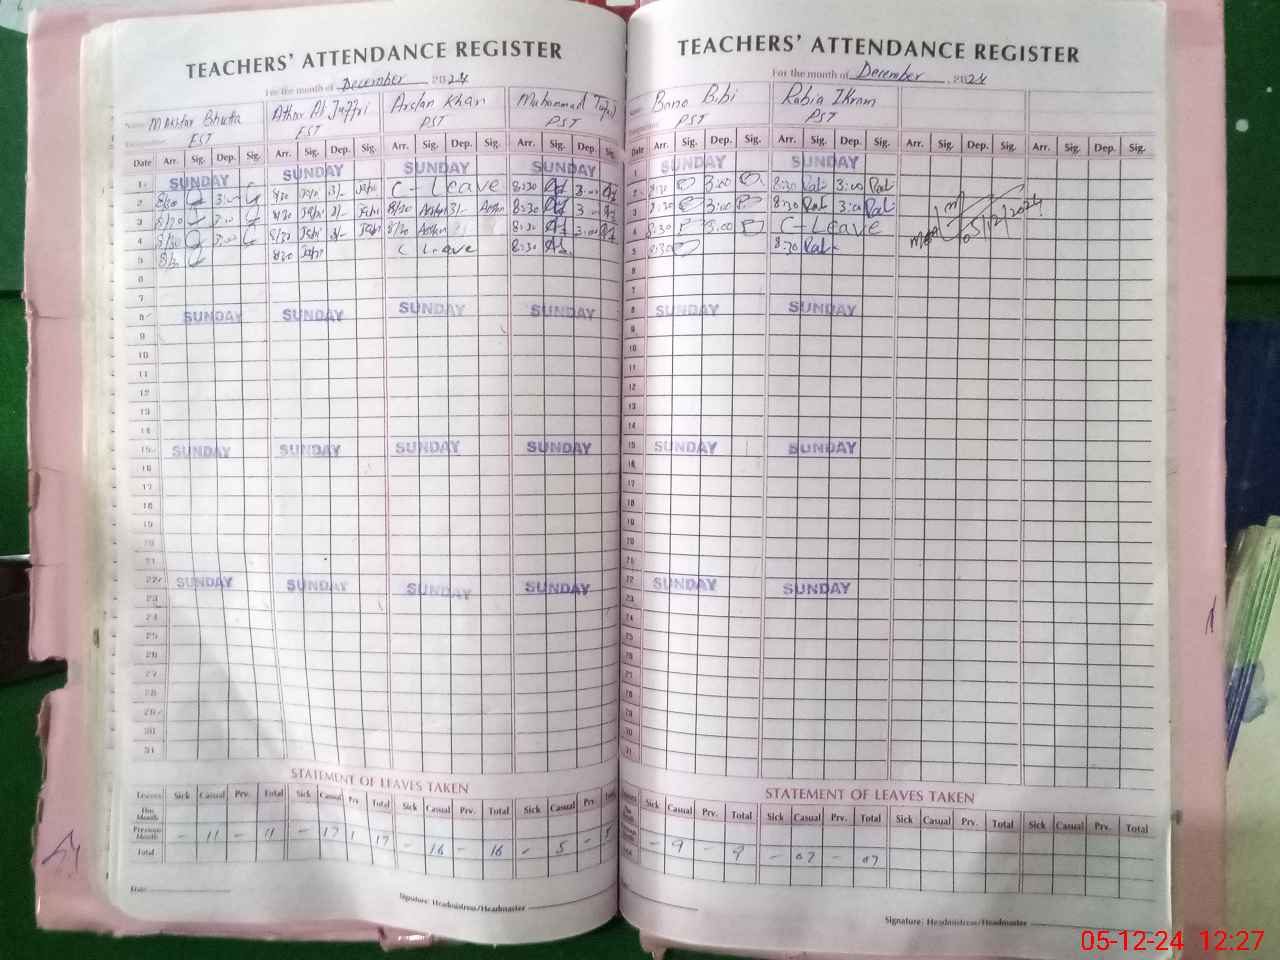 TEACHERS' ATTENDANCE REGISTER
For the month of December 2024
Name M Akhtar Bhutta Athar Ali Jaffri Arslan Khan Muhammad
EST EST PST PST
Date Arr. Sig. Dep. Sig. Arr. Sig. Dep. Sig. Arr. Sig. Dep. Sig. Arr. Sig. Dep. Sig.
1 SUNDAY SUNDAY SUNDAY SUNDAY
2 3:00 8/30 3/- C-Leave 8:30 3:00
3 8/30 3:00 8/30 3/- 8/30 Arslan 3/- Arslan 8:30 3
4 8/30 3:00 8/30 3/- 8/30 Arslan 8:30 3:00
5 8/30 C Leave 8:30
6
7
8 SUNDAY SUNDAY SUNDAY SUNDAY
9
10
11
12
13
14
15 SUNDAY SUNDAY SUNDAY SUNDAY
16
17
18
19
20
21
22 SUNDAY SUNDAY SUNDAY SUNDAY
23
24
25
26
27
28
29
30
31
STATEMENT OF LEAVES TAKEN
Leaves Sick Casual Prv. Total Sick Casual Prv. Total Sick Casual Prv. Total Sick Casual Prv.
This Month
Previous Month - 11 - 11 - 17 17 - 16 - 16 - 5 - 5
Total
Date
Signature: Headmistress/Headmaster
TEACHERS' ATTENDANCE REGISTER
For the month of December 2024
Bano Bibi Rabia Ikram
PST PST
Date Arr. Sig. Dep. Sig. Arr. Sig. Dep. Sig. Arr. Sig. Dep. Sig. Arr. Sig. Dep. Sig.
1 SUNDAY SUNDAY
2 8:30 3:00 8:30 3:00
3 8:30 3:00 8:30 3:00
4 8:30 3:00 C-Leave
5 8:30 8:30
05/12/2024
6
7
8 SUNDAY SUNDAY
9
10
11
12
13
14
15 SUNDAY SUNDAY
16
17
18
19
20
21
22 SUNDAY SUNDAY
23
24
25
26
27
28
29
30
31
STATEMENT OF LEAVES TAKEN
Sick Casual Prv. Total Sick Casual Prv. Total Sick Casual Prv. Total Sick Casual Prv. Total
- 9 - 9 - 07 - 07
Signature: Headmistress/Headmaster
05-12-24 12:27